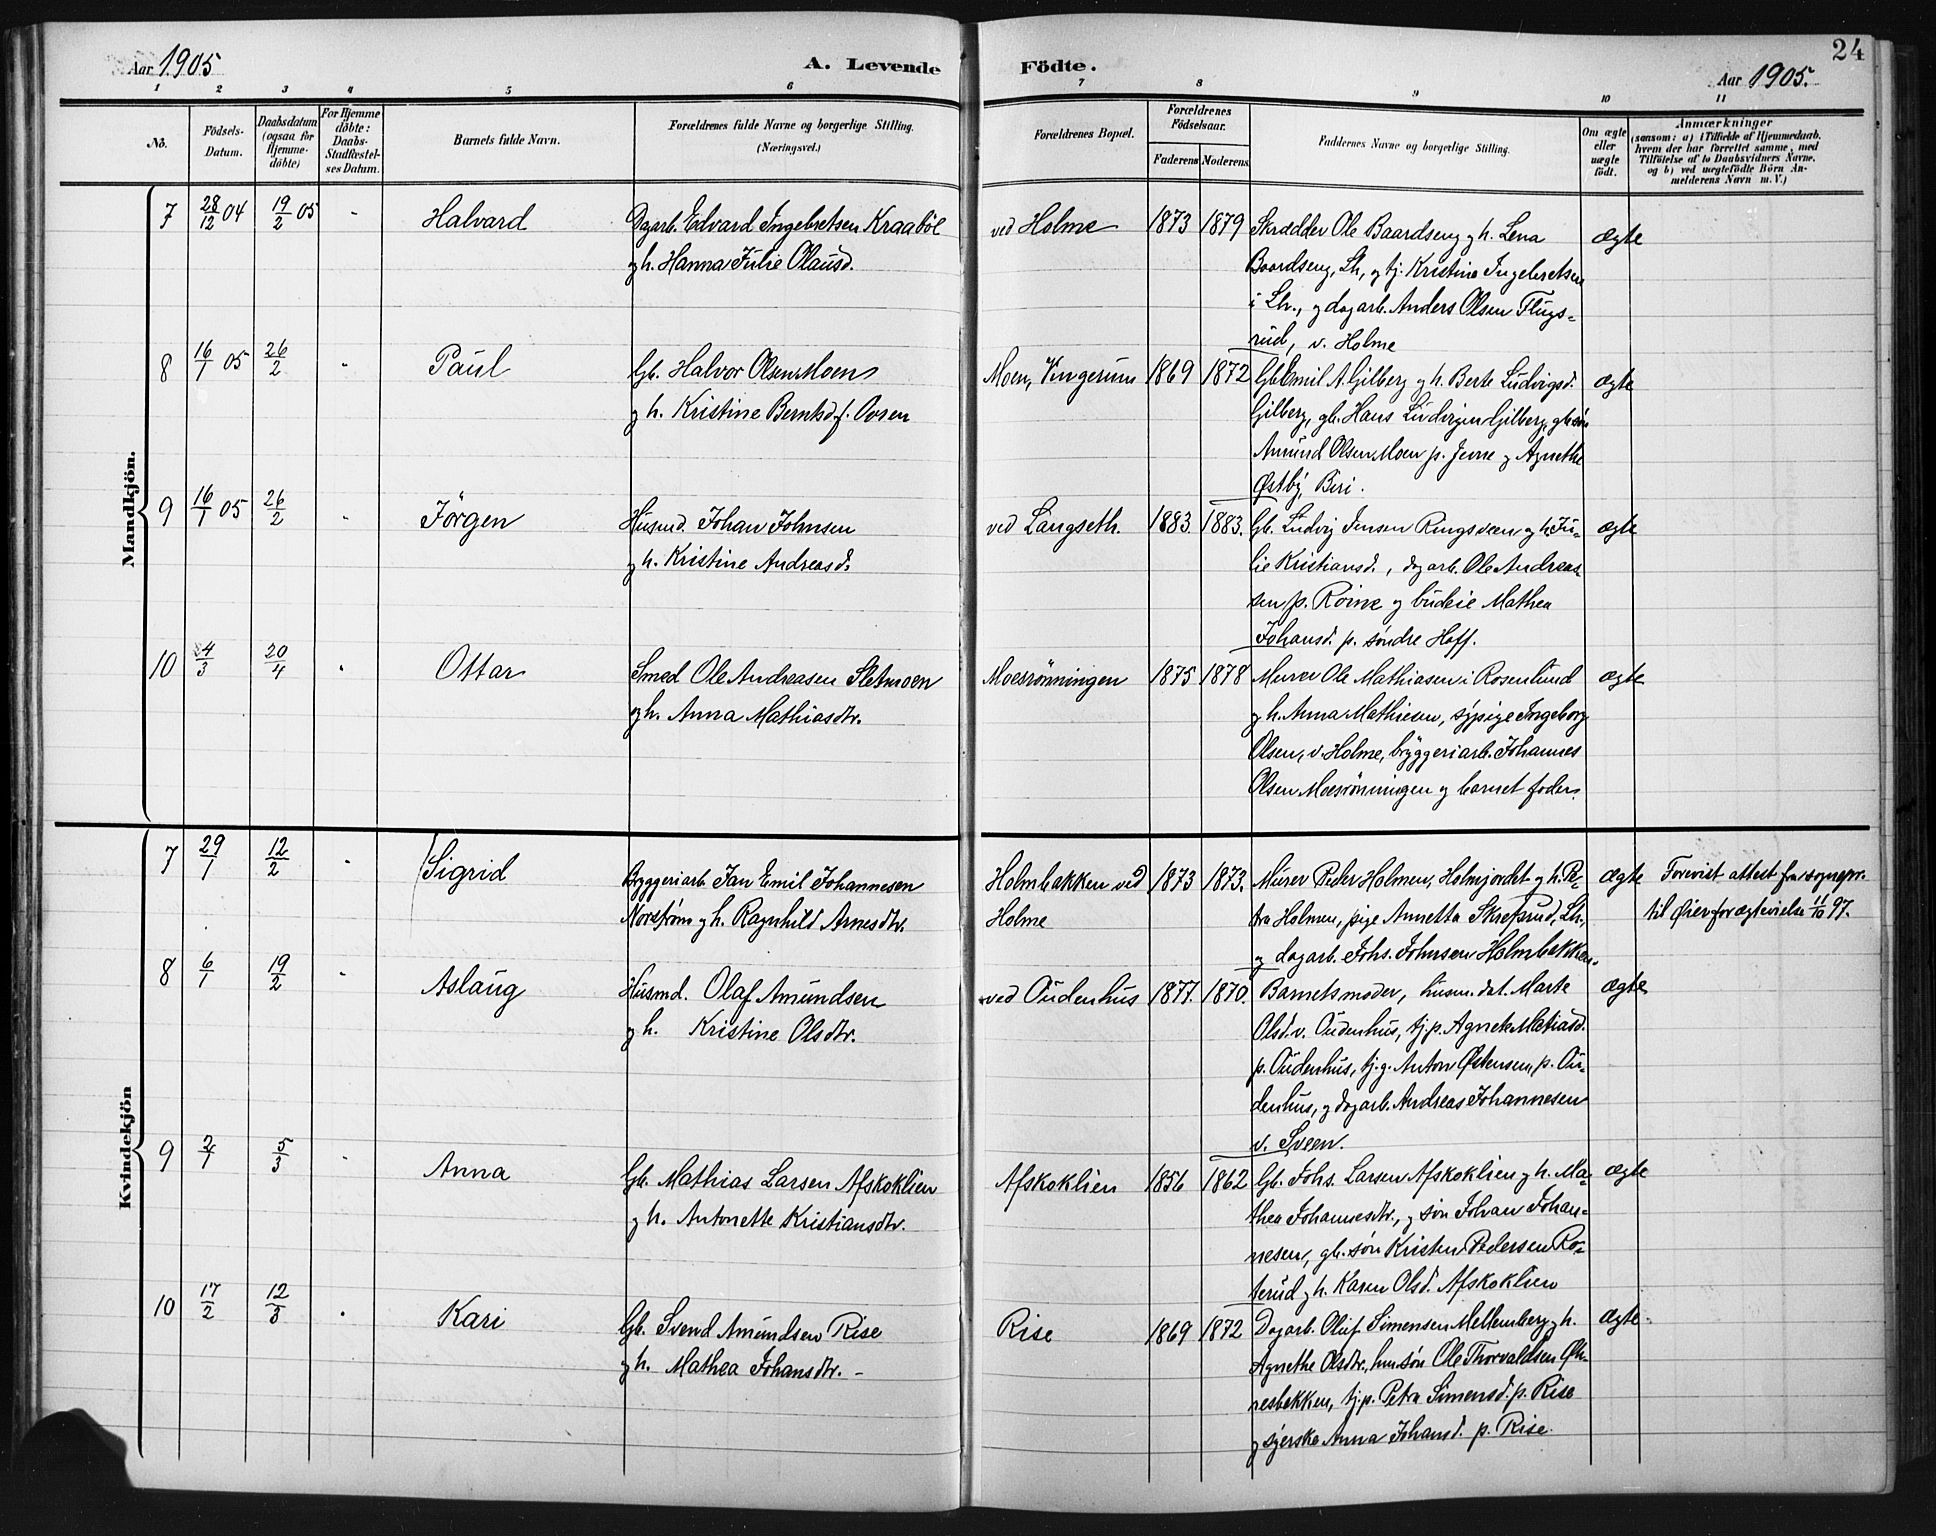 24
Aar 1905
A. Levende Födte.
Aar 1905.
1 2 3 4 5 6 7 8 9 10 11
No.
Födsels-Datum.
Daabsdatum (ogsaa for Hjemmedöbte)
For Hjemmedöbte: Daabs-Stadfæstelses Datum.
Barnets fulde Navn.
Forældrenes fulde Navne og borgerlige Stilling. (Næringsvei.)
Forældrenes Bopæl.
Forældrenes Födselsaar.
Faderens Moderens
Faddernes Navne og borgerlige Stilling.
Om ægte eller uægte födt.
Anmærkninger
(saasom: a) i Tilfælde af Hjemmedaab, hvem der har forrettet samme, med Tilföielse af to Daabsvidners Navne, og b) ved uægtefödte Börn Anmelderens Navn m. V.)
Mandkjön.
7 28/12 04 19/2 05 - Halvard
Dagarb. Edvard Ingebretsen Kraaböl
og h. Hanna Julie Olausd.
ved Holme 1873 1879
Skrædder Ole Baardseng og h. Lena
Baardseng, Lh., og tj. Kristine Ingebretsen
i Lh., og dagarb. Anders Olsen Flugs-
rud, v. Holme
ægte
8 16/1 05 26/2 - Paul
Gb. Halvor Olsen Moen
og h. Kristine Berntsd. f. Ovren
Moen, Vingerum 1869 1872
Gb. Emil A. Gilberg og h. Berte Ludvigsd.
Gilberg, gb. Hans Ludvigsen Gilberg, gb. søn
Amund Olsen Moen p. Jevne og Agnethe
Østby, Biri.
ægte
9 16/1 05 26/2 - Jörgen
Husmd. Johan Johnsen
og h. Kristine Andreasd.
ved Langseth. 1883. 1883.
Gb. Ludvig Jensen Ringsveen og h. Ju-
lie Kristiansd., dagarb. Ole Andreas-
sen p. Roine og budeie Mathea
Johansd. p. søndre Hoff.
ægte
10 4/3 20/4 - Ottar
Smed Ole Andreasen Sletmoen
og h. Anna Mathiasdtr.
Moesrönningen 1875 1878
Murer Ole Mathiasen i Rosenlund
og h. Anna Mathiesen, sypige Ingeborg
Olsen, v. Holme, bryggeriarb. Johannes
Olsen Moesrönningen og barnet fader.
ægte
Kvindekjön
7 29/1 12/2 - Sigrid
Bryggeriarb. Jan Emil Johannesen
Norstrøm og h. Ragnhild Arnesdtr.
Holmbakken ved
Holme
1873 1873.
Murer Peder Holmen, Holmjordet og h. Pe-
tra Holmen, pige Annetta Skrefsrud, Lh.,
og dagarb. Johs. Johnsen Holmbakken.
ægte
Forevist attest fra sognepr.
til Øier for ægtevielse 11/10 97.
8 6/1 19/2 - Aslaug
Husmd. Olaf Amundsen
og h. Kristine Olsdtr.
ved Oudenhus 1877. 1870.
Barnets moder, husm. dat. Marte
Olsd. v. Oudenhus, tj.p. Agnete Matiasd.
p. Oudenhus, tj.g. Anton Østensen, p. Ou-
denhus, og dagarb. Andreas Johannesen
v. Sveen.
ægte
9 2/1 5/3 - Anna
Gb. Mathias Larsen Afskoklien
og h. Antonette Kristiansdtr.
Afskoklien 1856 1862
Gb. Johs. Larsen Afskoklien og h. Ma-
thea Johannesdtr., og søn Johan Johan-
nesen, gb. søn Kristen Pedersen Ro-
terud og h. Karen Olsd. Afskoklien
ægte
10 17/2 12/3 - Kari
Gb. Svend Amundsen Rise
og h. Mathea Johansdtr. -
Rise 1869 1872
Dagarb. Oluf Simensen Mellemberg og h.
Agnethe Olsdtr., hus søn Ole Thorvaldsen Øk-
nesbakken, tj.p. Petra Simensd. p. Rise
og syerske Anna Johansd. p. Rise.
ægte.